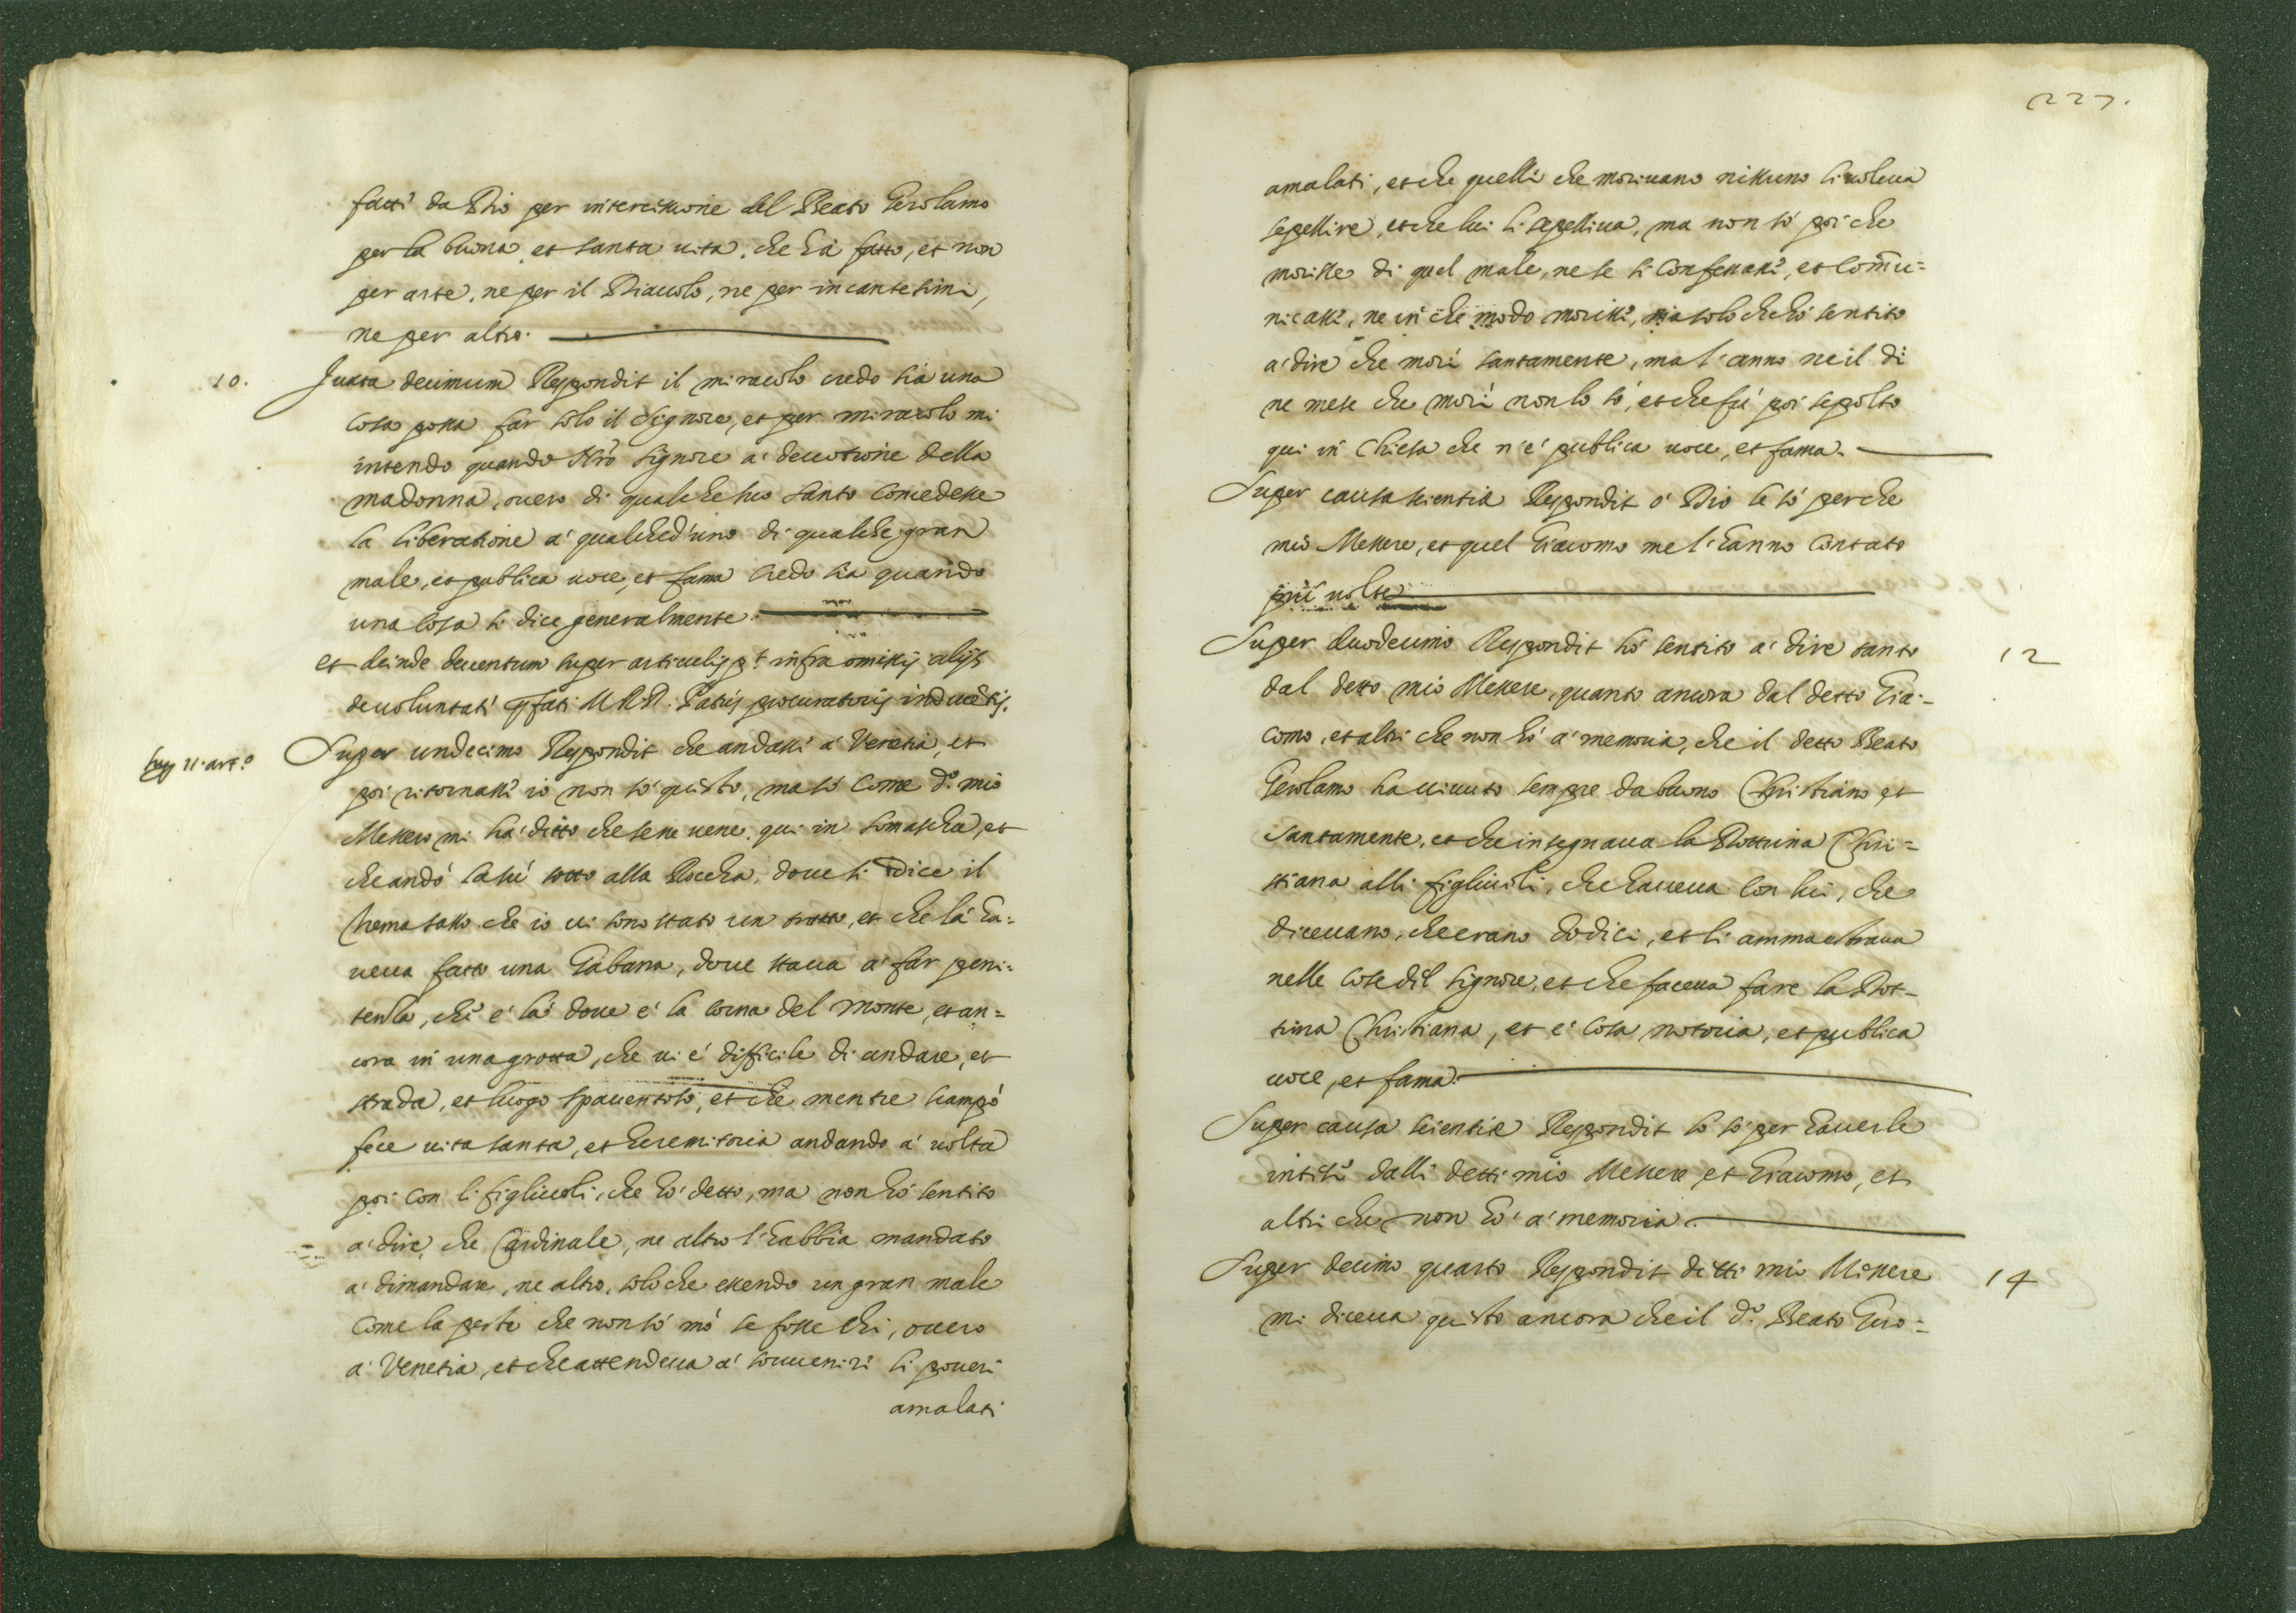 fatti da Dio per intercissione del Beato Gerolamo
per la buona, et santa vita, che hà fatto, et non
per arte, ne per il Diavolo, ne per incantesimi,
ne per altro.
10.
Juxta decimum Respondit il miracolo credo sia una
cosa possa far solo il Signore, et per miracolo mi
intendo quando Nrō Signore a' devotione della
madonna, overo di qualche suo santo concedesse
la liberatione a' qualched'uno di qualche gran
male, et publica voce, et fama credo sia quando
una cosa si dice generalmente.
et deinde deventum super articulis pt infra omissis alijs
de voluntati pfati M. R. D. Patris procuratoris inducētis.
sup 11. art.º
Super undecimo Respondit che andassi a' Venetia, et
poi ritornassi io non sò questo, ma sò come d.º mio
Messere mi ha' ditto che sene vene qui in Somascha, et
che andò la sù sotto alla Roccha, dove si dice il
Tremasasso che io vi sono stato un tratto, et che là ha=
veva fatto una Gabana, dove stava a' far peni=
tenza, chi è là dove è la corna del monte, et an=
cora in una grotta, che vi è difficile di andare, et
strada, et luogo spaventoso, et che mentre scampò
fece vita santa, et heremitoria andando a' volta
poi con li figlivoli, che hò detto, ma non hò sentito
a' dire, che Cardinale, ne altro l'habbia mandato
a' dimandare, ne altro, solo che essendo un gran male
come la peste che non sò mò se fosse chi, overo
a' Venetia, et che attendeva a' sovveniri li poveri
amalati
227.
amalati, et che quelli che morivano nissuno li voleva
sepellire, et che lui li sepelliva, ma non sò poi che
morisse di quel male, ne se si confessassi, et com̄u=
nicassi, ne in che modo morissi, ma solo che hò sentito
a' dire che morì santamente, ma l'anno ne il dì
ne mese che morì non lo sò, et che fù poi sepolto
qui in Chiesa che n'è publica voce, et fama.
Super causa scientiæ Respondit ò Dio le sò perche
mio Messere, et quel Giacomo me l'hanno contato
più volte
12
Super duodecimo Respondit hò sentito a' dire tanto
dal detto mio Messere, quanto ancora dal detto Gia=
como, et altri che non hò a' memoria, che il detto Beato
Gerolamo ha vivuto sempre da buono Christiano et
santamente, et che insegnava la Dottrina Chri=
stiana alli figlivoli, che haveva con lui, che
dicevano, che erano dodici, et li ammaestrava
nelle cose dil Signore, et che faceva fare la Dot=
trina Christiana, et è cosa notoria, et publica
voce, et fama.
Super causa scientiæ Respondit lo sò per haverle
intisi dalli detti mio Messere, et Giacomo, et
altri che non hò a' memoria.
14
Super decimo quarto Respondit ditti mio Missere
mi diceva questo ancora che il d.º Beato Giro=